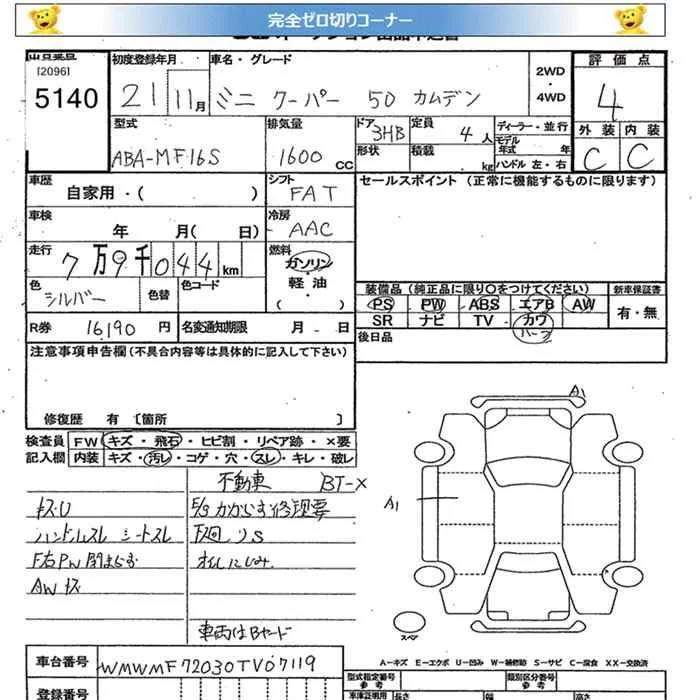 完全ゼロ切りコーナー
出品番号
[2096]
5140
初度登録年月
21 11月
車名・グレード
ミニ クーパー 50 カムデン
2WD
・
4WD
評価点
4
外装 内装
C C
型式
ABA-MF16S
排気量
1600 CC
ドア 3HB
形状
定員 4人
積載 kg
ディーラー・並行
モデル年式 年
ハンドル 左・右
車歴
自家用・( )
シフト
FAT
セールスポイント (正常に機能するものに限ります)
車検
年 月( 日)
冷房
AAC
走行
7万9千044km
燃料
ガソリン
・
軽油
・
( )
色
シルバー
色替
色コード
装備品 (純正品に限り○をつけてください)
PS PW ABS エアB AW
SR ナビ TV カワ
ハーフ
新車保証書
有・無
R券 16190 円
名変通知期限 月 日
後日品
注意事項申告欄 (不具合内容等は具体的に記入して下さい)
修復歴 有 〔箇所 〕
検査員
記入欄
FW キズ・飛石・ヒビ割・リペア跡・×要
内装 キズ・汚レ・コゲ・穴・スレ・キレ・破レ
不動車 BT-×
キズU
ハンドルスレ シートスレ
F右PW閉まらず
AWキズ
E/gかからず修理要
下廻りS
オイルにじみ
車両はBヤード
A1
A1
スペア
A-キズ E-エクボ U-凹み W-補修跡 S-サビ C-腐食 XX-交換済
車台番号 WMWMF72030TV07119
登録番号
型式指定番号
参考
類別区分番号
参考
車庫証明用
長さ
幅
高さ